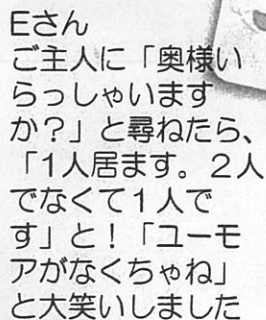 Eさん
ご主人に「奥様い
らっしゃいます
か？」と尋ねたら、
「1人居ます。２人
でなくて１人で
す」と！「ユーモ
アがなくちゃね」
と大笑いしました